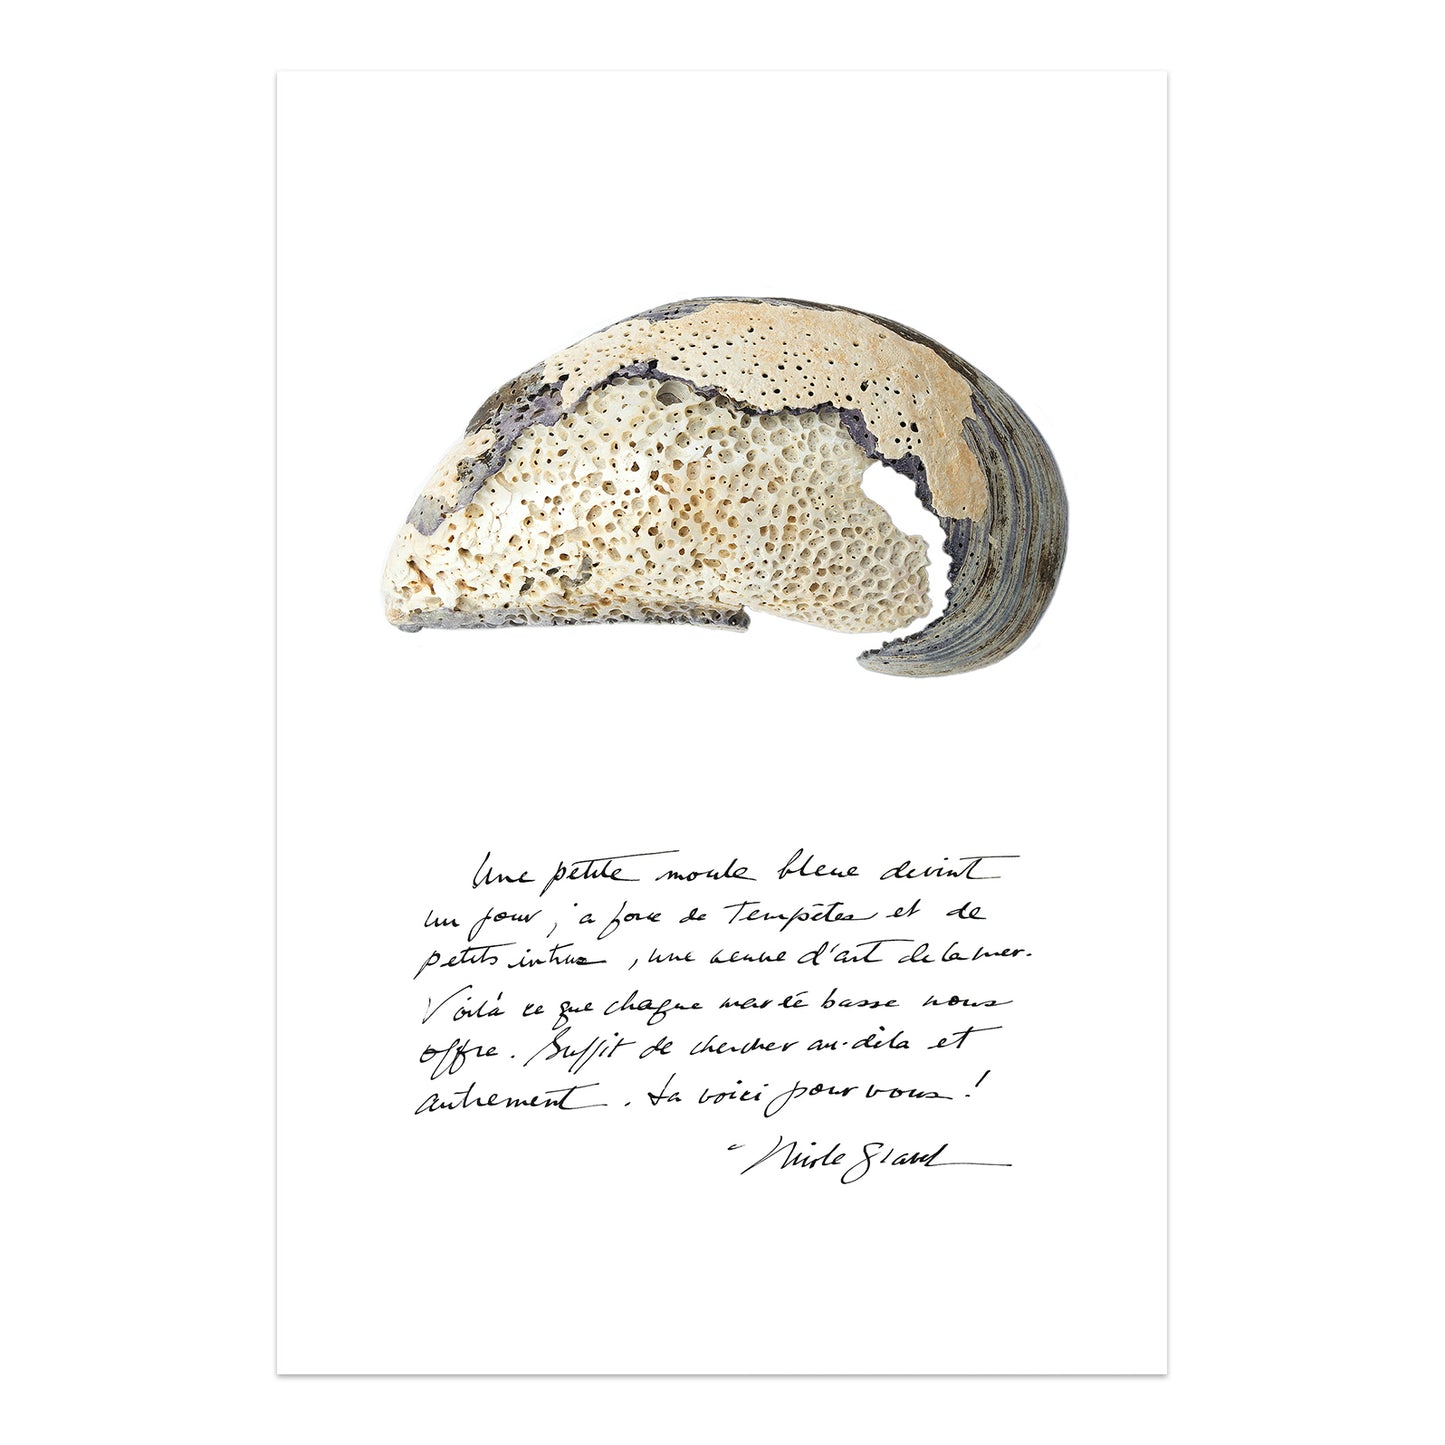 Une petite moule bleue devint
un jour, à force de Tempêtes et de
petits intrus, une œuvre d'art de la mer.
Voilà ce que chaque marée basse nous
offre. Suffit de chercher au-delà et
autrement. La voici pour vous !
Nicole